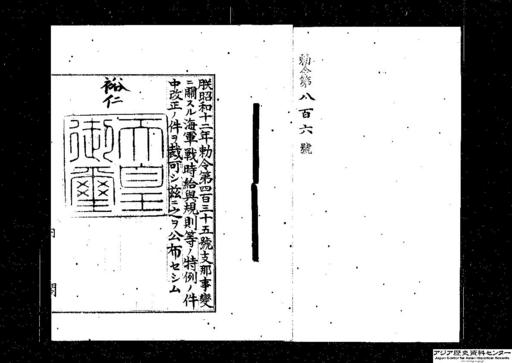 勅令第八百六號
朕昭和十二年勅令第四百三十五號支那事變
ニ關スル海軍戰時給與規則等ノ特例ノ件
中改正ノ件ヲ裁可シ茲ニ之ヲ公布セシム
裕仁
天皇御璽
内閣
アジア歴史資料センター
Japan Center for Asian Historical Records